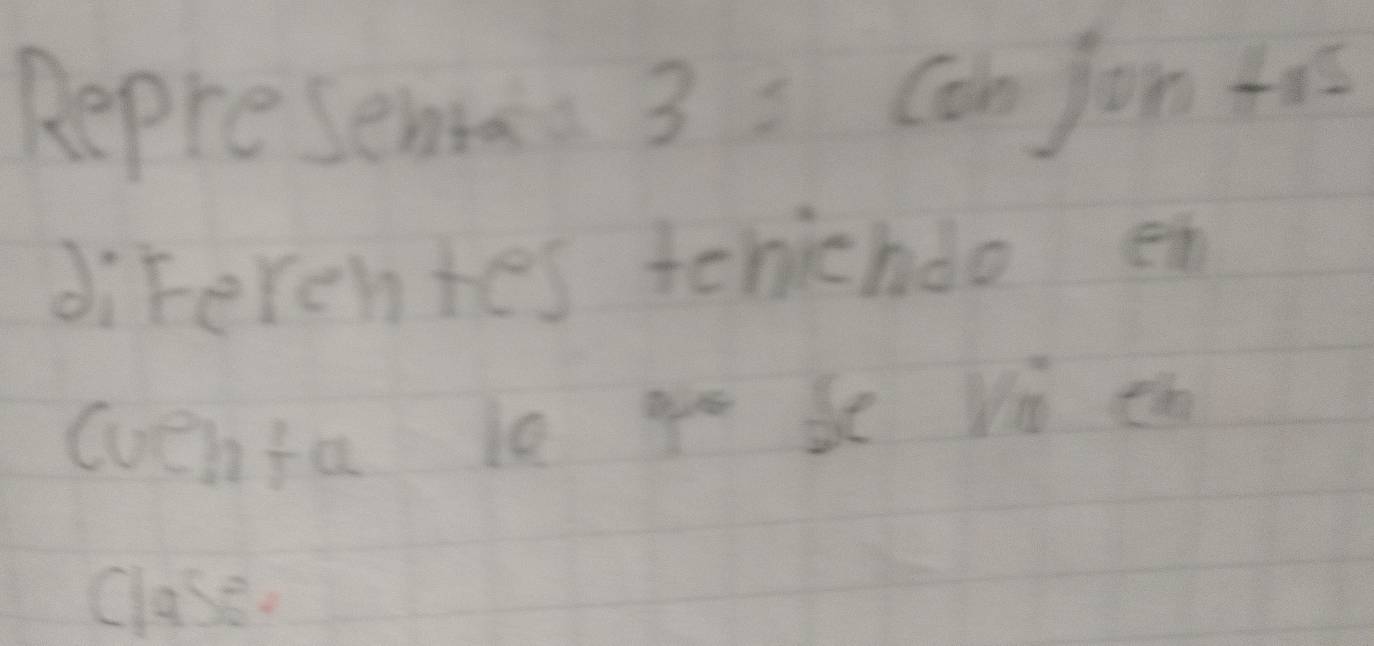 Representa 3 : Conjontos
diferentes teniendo en
cuenta lo que se vió en
clase.